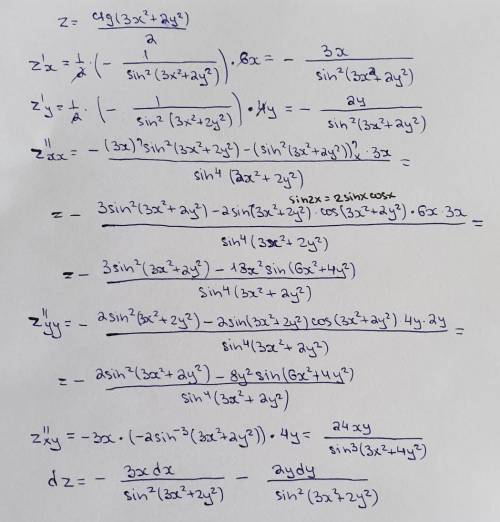 z = ctg(3x²+2y²)/2
z'x = 1/2 · (− 1/sin²(3x²+2y²)) · 6x = − 3x/sin²(3x²+2y²)
z'y = 1/2 · (− 1/sin²(3x²+2y²)) · 4y = − 2y/sin²(3x²+2y²)
z''xx = − ((3x)' sin²(3x²+2y²) − (sin²(3x²+2y²))'x · 3x)/sin⁴(3x²+2y²) =
sin2x = 2sinxcosx
= − (3sin²(3x²+2y²) − 2sin(3x²+2y²) · cos(3x²+2y²) · 6x 3x)/sin⁴(3x²+2y²) =
= − (3sin²(3x²+2y²) − 18x² sin(6x²+4y²))/sin⁴(3x²+2y²)
z''yy = − (2sin²(3x²+2y²) − 2sin(3x²+2y²) cos(3x²+2y²) 4y · 2y)/sin⁴(3x²+2y²) =
= − (2sin²(3x²+2y²) − 8y² sin(6x²+4y²))/sin⁴(3x²+2y²)
z''xy = −3x · (−2sin⁻³(3x²+2y²)) · 4y = 24xy/sin³(3x²+4y²)
dz = − 3xdx/sin²(3x²+2y²) − 2ydy/sin²(3x²+2y²)